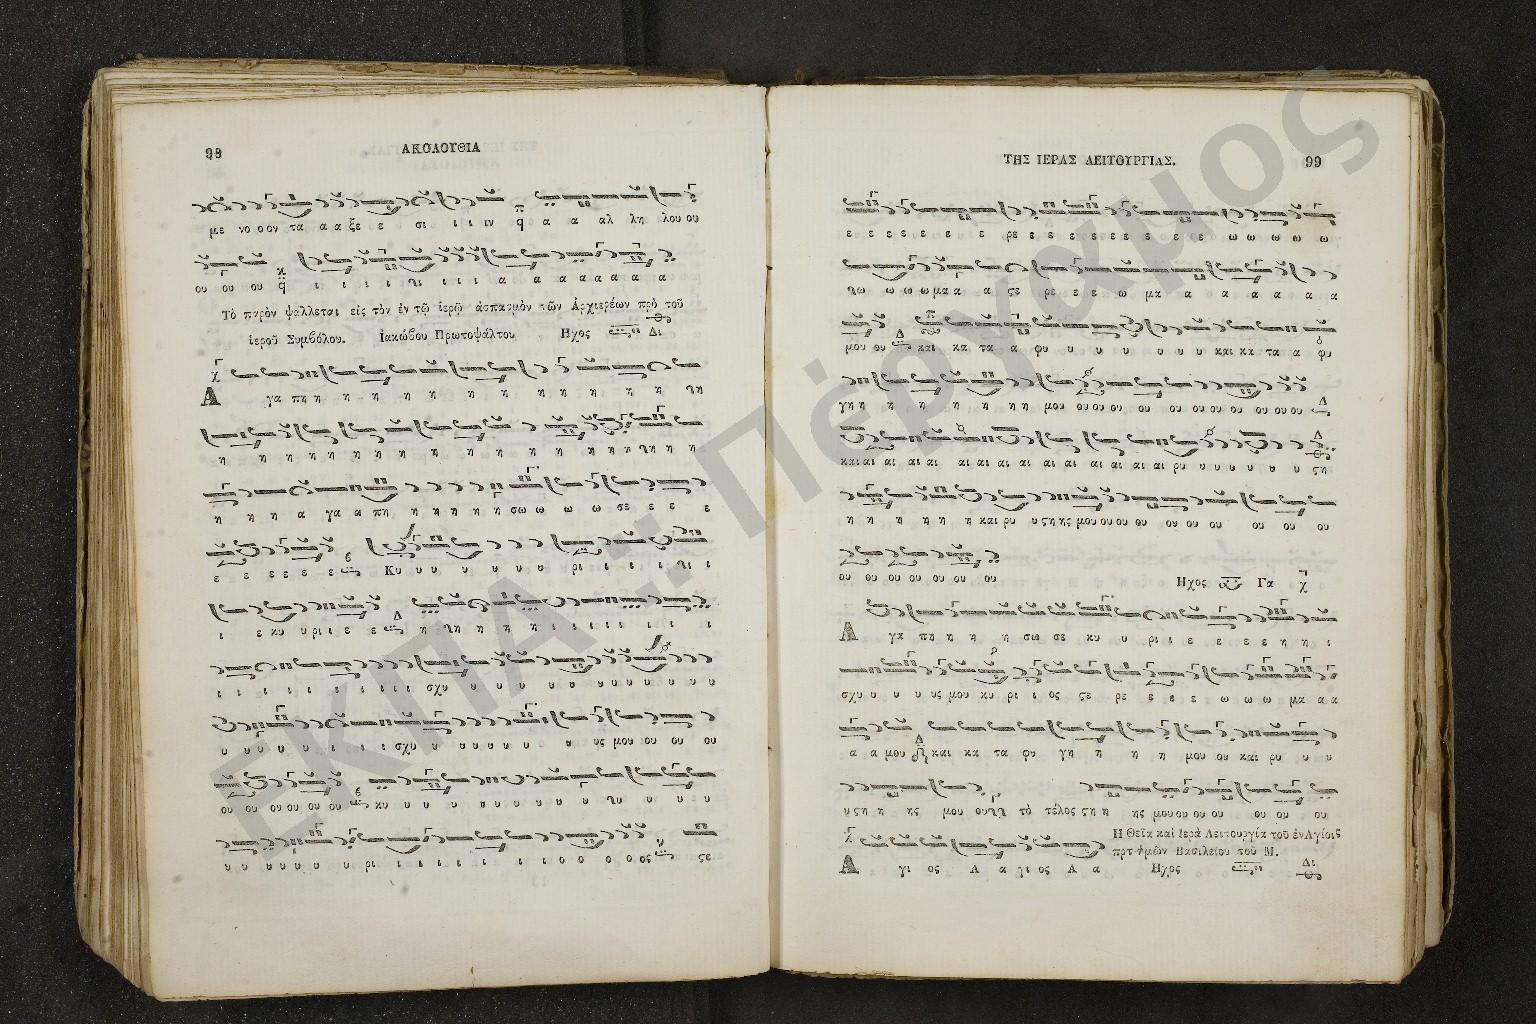 98 ΑΚΟΛΟΥΘΙΑ
με νο ον τα α α ξε ε σι ι ι ιν α α αλ λη λου ου
ου ου ου ι ι ι ι λι ι ι ι α α α α α α α α
Τὸ παρὸν ψάλλεται εἰς τὸν ἐν τῷ ἱερῷ ἀσπασμὸν τῶν Ἀρχιερέων πρὸ τοῦ
ἱεροῦ Συμβόλου. Ἰακώβου Πρωτοψάλτου Ηχος Δι
Α γα πη η η η η η η η η η η η λη
η η η η η η η η η η η η η η η η λη η η
η η η α γα α πη η η η η η σω ω ω ω σε ε ε ε
ε ε ε ε ε ε Κυ υ υ υ υ υ υ ρι ι ι ι ι λι ι
ι ε κυ υ ρι ε ε ε η λη η η η ι ι ι ι ι ι ι
ι ι ι ι ι ι ι ι ι ι ι σχυ υ υ υ υ υ υ υ υ υ υ υ
υ υ υ υ υ ι ι ι ι σχυ υ υ υ υ υ υ υ υ υς μου ου ου ου
ου ου ου ου ου ου κυ υ υ υ υ υ υ υ υ υ υ λυ υ υ υ υ
υ υ υ υ υ υ ρι ι ι ι ι ι ι ι ο ο ο ο ος ςε
ΤΗΣ ΙΕΡΑΣ ΛΕΙΤΟΥΡΓΙΑΣ. 99
ε ε ε ε ε ε ε ρε ε ε ε ε ε ε ε ε ε ω ω ω ω ω
λω ω ω ω μα α α α ςε ρε ε ε ω μα α α α α α α
μου ου και κα τα α φυ υ υ υ υ υ υ υ και κα τα α φυ
γη η η η η η η η μου ου ου ου ου ου ου ου ου ου ου ου
και αι αι αι αι αι αι αι αι αι αι αι αι αι ρυ υ υ υ υ υ υ ςη
η η η η η η και ρυ υ ςη ης μου ου ου ου ου ου ου ου ου ου
ου ου ου ου ου ου ου Ηχος Γα
Α γα πη η η η σω σε κυ υ ρι ι ε ε ε ε η η ι
σχυ υ υ υ υς μου κυ ρι ι ος ςε ρε ε ε ε ω ω ω μα α α
α α μου και κα τα φυ γη η η η η μου ου και ρυ υ υ
υ ςη η ης μου ου τὸ τέλος ςη η ης μου ου ου ου ου ου ου
Η Θεῖα καὶ Ἱερὰ Λειτουργία τοῦ ἐν Ἁγίοις
πρς ἡμῶν Βασιλείου τοῦ Μ.
Α γι ος Α α γι ος Α α Ηχος Δι
ΕΚΠΑ :: Πέργαμος